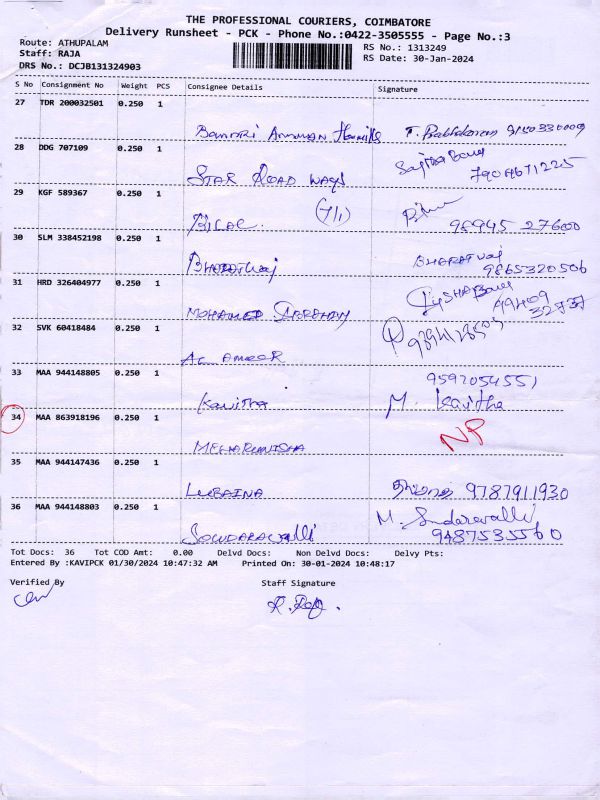 THE PROFESSIONAL COURIERS, COIMBATORE
Delivery Runsheet - PCK - Phone No.:0422-3505555 - Page No.:3
Route: ATHUPALAM RS No.: 1313249
Staff: RAJA RS Date: 30-Jan-2024
DRS No.: DCJB131324903
S No Consignment No Weight PCS Consignee Details Signature
27 TDR 200032501 0.250 1
Amman
28 DDG 707109 0.250 1
STAR ROAD WAYS 7904671225
29 KGF 589367 0.250 1
BILAL (7/1) 98945 27600
30 SLM 338452198 0.250 1
BHARATHaj BHARATHaj 9865320506
31 HRD 326404977 0.250 1
MOHAMED
32 SVK 60418484 0.250 1
AL AMEER
33 MAA 944148805 0.250 1 9597054551
Kavitha M. Kavitha
34 MAA 863918196 0.250 1 NP
MEHARUNISHA
35 MAA 944147436 0.250 1
LUBAINA 9787911930
36 MAA 944148803 0.250 1 M. Sndaravalli
SOWDARAValli 9487535560
Tot Docs: 36 Tot COD Amt: 0.00 Delvd Docs: Non Delvd Docs: Delvy Pts:
Entered By :KAVIPCK 01/30/2024 10:47:32 AM Printed On: 30-01-2024 10:48:17
Verified By Staff Signature